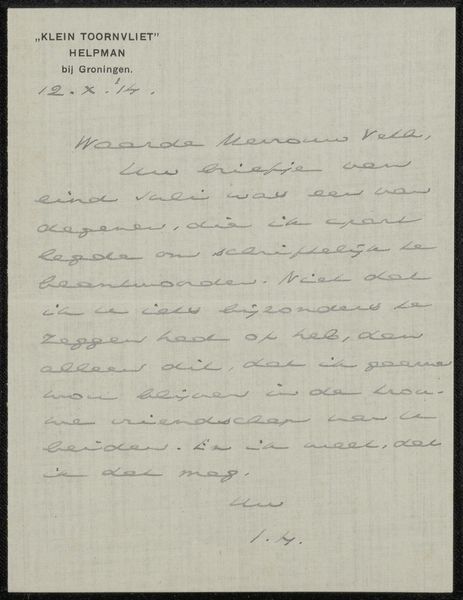 „KLEIN TOORNVLIET”
HELPMAN
bij Groningen.
12.X.'14.
Waarde Mevrouw Veth,
Uw briefje van
eind Juli was een van
degenen, die ik apart
legde om schriftelijk te
beantwoorden. Niet dat
ik u iets bijzonders te
zeggen had of heb, dan
alleen dit, dat ik gaarne
wou blijven in de trou-
we vriendschap van U
beiden. En ik weet, dat
ik dat mag.
Uw
I.H.